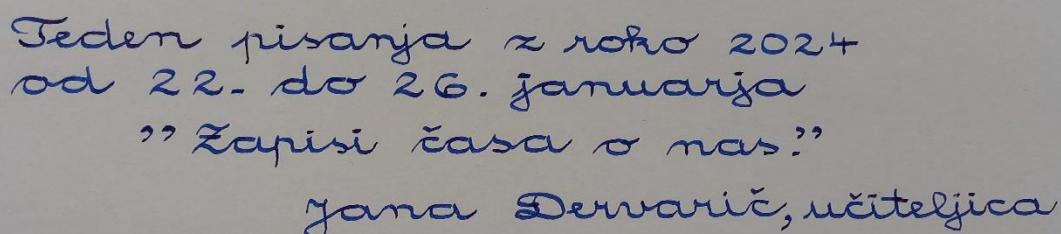 Teden pisanja z roko 2024
od 22. do 26. januarja
”Zapisi časa o nas.”
Jana Dervarič, učiteljica